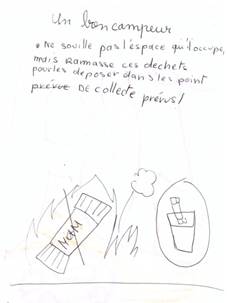 Un bon campeur
• Ne souille pas l'espace qu'il occupe,
mais Ramasse ces dechets
pour les deposer dans les point
prévue DE collecte prévus!